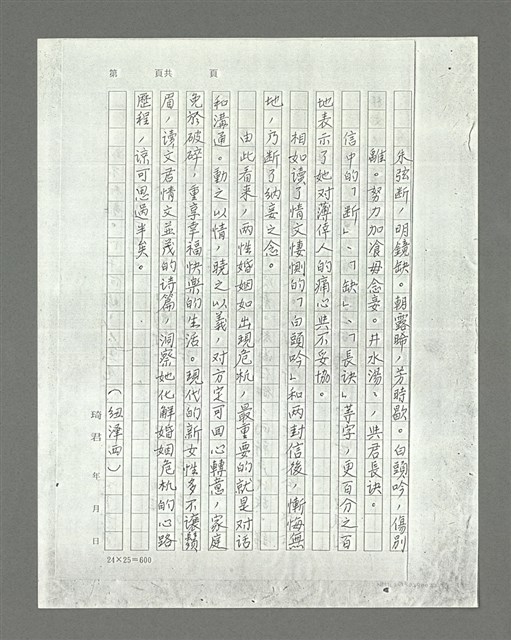 第 頁共 頁
朱弦断，明鏡缺。朝露晞，芳時歇。白頭吟，傷别
離。努力加湌毋念妾。井水湯、，共君長诀。
信中的「断」、「缺」、「長诀」等字，更百分之百
地表示了她对薄倖人的痛心與不妥協。
相如读了情文悽惻的「白頭吟」和两封信後，慚悔無
地，乃断了纳妾之念。
由此看来，两性婚姻如出现危机，最重要的就是对话
和溝通。動之以情，曉之以義，对方定可回心轉意，家庭
免於破碎，重享幸福快樂的生活。現代的新女性多不讓鬚
眉，读文君情文並茂的诗篇，洞察她化解婚姻危机的心路
歷程，諒可思過半矣。
（纽泽西）
琦君 年 月 日
24×25=600